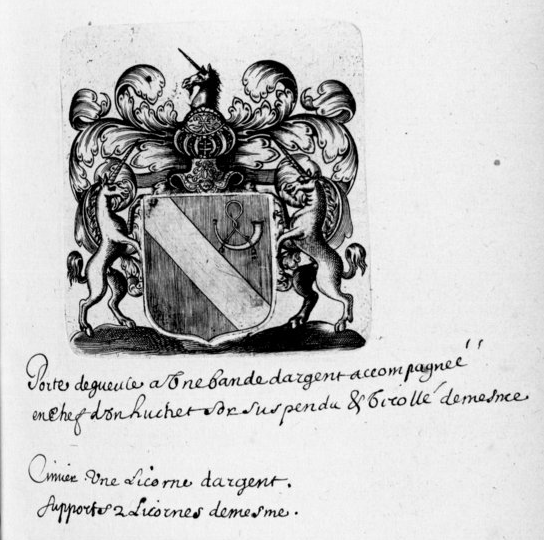 Porte de gueule a Vne bande dargent accompagneé
en Chef dVn huchet Or suspendu & Virollé demesme
Cimier Vne Licorne dargent.
Supports 2 Licornes demesme.